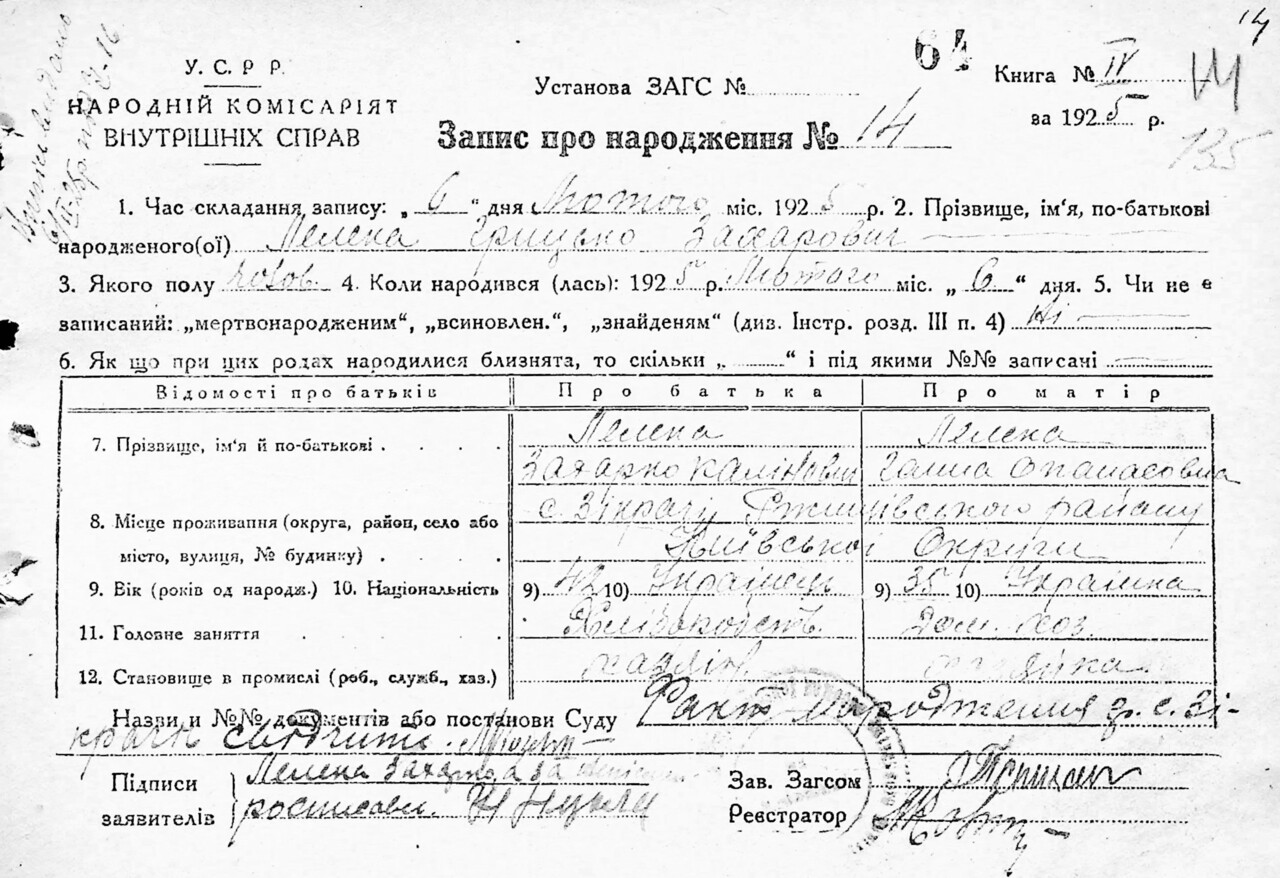 14
У. С. Р. Р.
НАРОДНІЙ КОМІСАРІЯТ
ВНУТРІШНІХ СПРАВ
64
Установа ЗАГС №
Книга № IV
за 1925 р.
135
Запис про народження № 14
1. Час складання запису: „ 6 “ дня Лютого міс. 1925 р. 2. Прізвище, ім'я, по-батькові
народженого(ої) Лелека Грицько Захарович
3. Якого полу чолов. 4. Коли народився (лась): 1925 р. Лютого міс. „ 6 “ дня. 5. Чи не є
записаний: „мертвонародженим“, „всиновлен.“, „знайденям“ (див. Інстр. розд. III п. 4) Ні
6. Як що при цих родах народилися близнята, то скільки „ “ і під якими №№ записані
Відомості про батьків Про батька Про матір
7. Прізвище, ім'я й по-батькові . . . . Лелека Лелека
Захарко Калінович Ганна Опанасовна
с. Зікрачі Ржищівського району
8. Місце проживання (округа, район, село або
місто, вулиця, № будинку) . . . . Київської Округи
9. Вік (років од народж.) 10. Національність 9) 42 10) Українець 9) 35 10) Українка
11. Головне заняття Хліборобств. Дом. хоз.
12. Становище в промислі (роб., служб., хаз.) хазяїн
Назви и №№ документів або постанови Суду Факт народження гр. с. Зі-
крачі свідчить
Підписи
заявителів
Лелека Захарко, а за
росписавс.
Зав. Загсом
Реєстратор